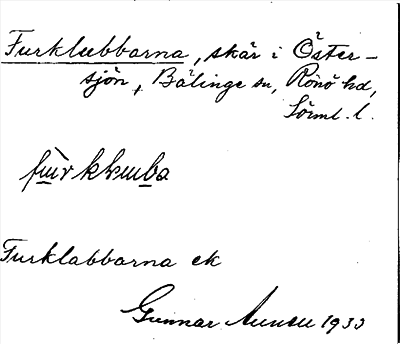 Furklubbarna, skär i Öster-
sjön, Bälinge sn, Rönö hd,
Sörml. l.
Furklabbarna ek
Gunnar 1933